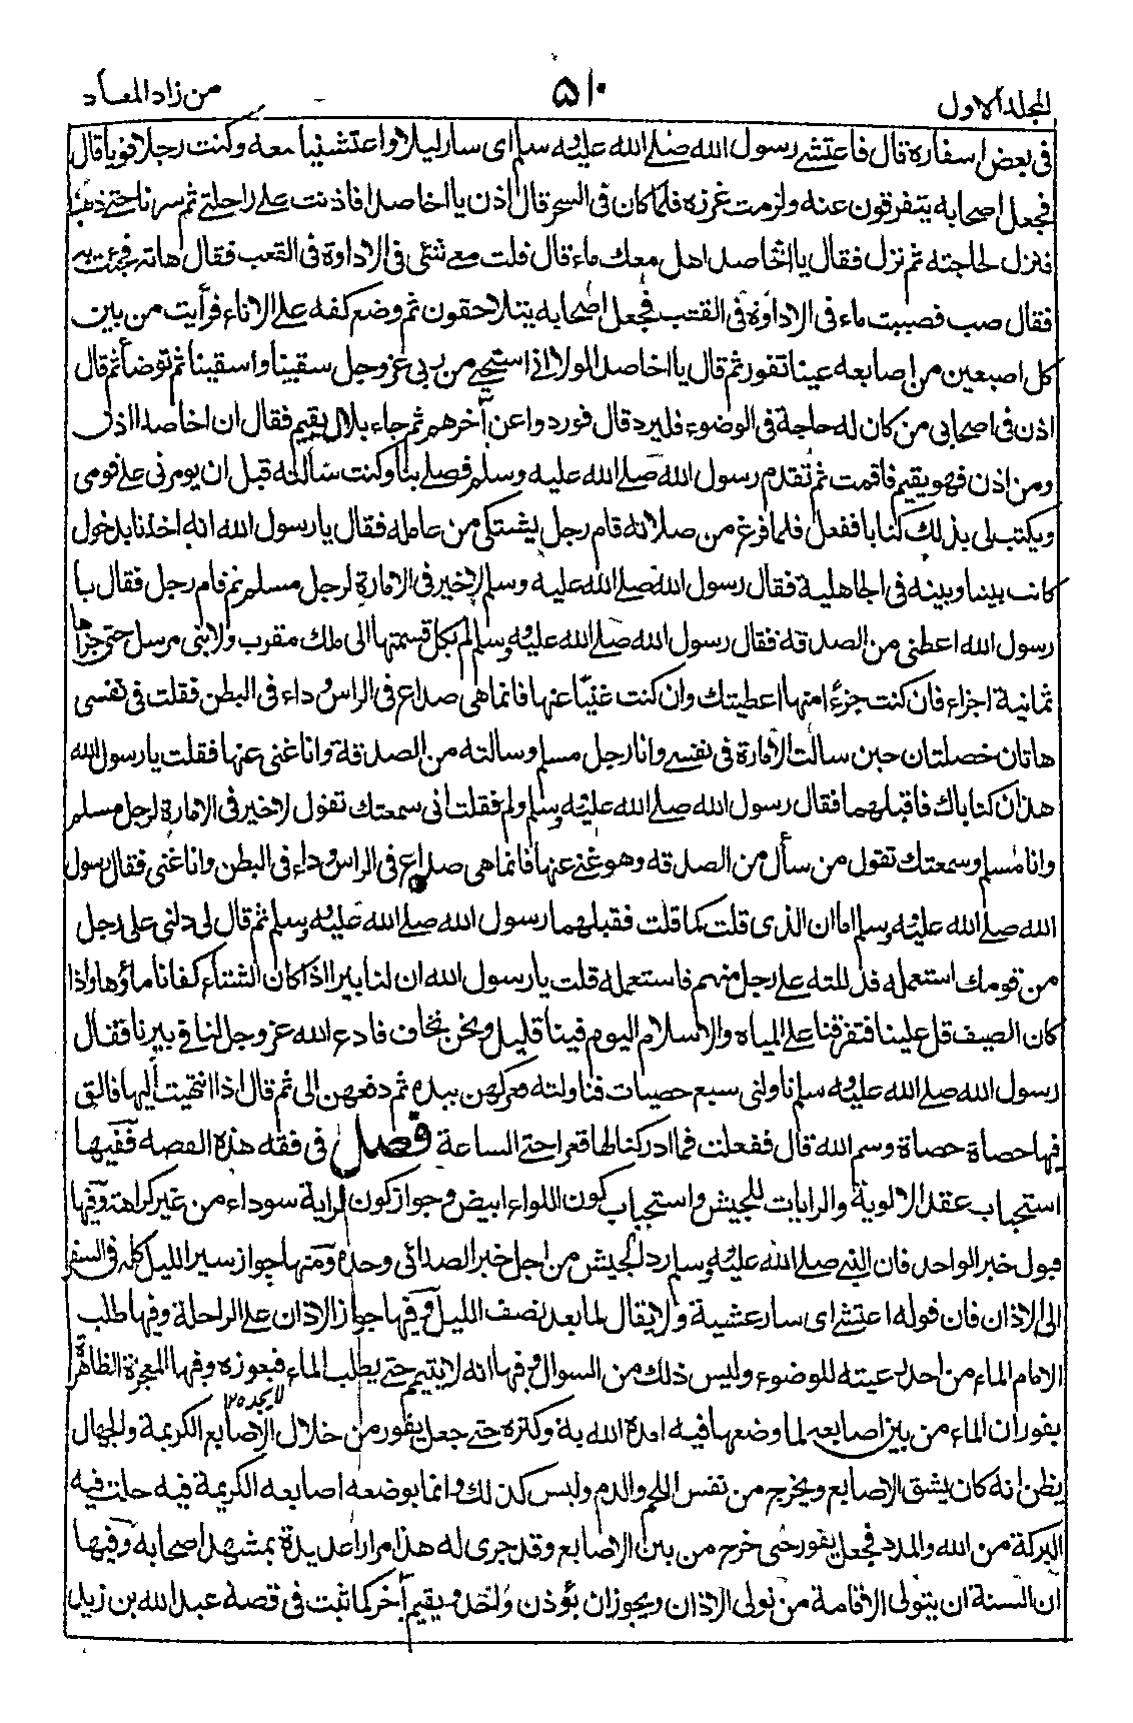 المجلد الاول ٥١٠ من زاد المعاد
فى بعض اسفاره قال فاعتشى رسول الله صلى الله عليه وسلم اى سار ليلا واعتشينا معه وكنت رجلا قويا قال
فجعل اصحابه يتفرقون عنه ولزمت غرزه فلما كان فى السحر قال اذن يا اخا صدا فاذنت على راحلتى ثم سرنا حتى ذهب
فنزل لحاجته ثم نزل فقال يا اخا صدا هل معك ماء قال قلت معى شئى فى الاداوة فى القعب فقال هاته فجئت به
فقال صب فصببت ماء فى الاداوة فى القتب فجعل اصحابه يتلاحقون ثم وضع كفه على الاناء فرأيت من بين
كل اصبعين من اصابعه عينا تفور ثم قال يا اخا صدا لولا انى استحيى من ربى عز وجل سقينا واسقينا ثم توضأ ثم قال
اذن فى اصحابى من كان له حاجة فى الوضوء فليرد قال فوردوا عن آخرهم ثم جاء بلال يقيم فقال ان اخا صدا اذن
ومن اذن فهو يقيم فاقمت ثم تقدم رسول الله صلى الله عليه وسلم فصلى بنا وكنت سألته قبل ان يومرنى على قومى
ويكتب لى بذلك كتابا ففعل فلما فرغ من صلاته قام رجل يشتكى من عامله فقال يا رسول الله انه اخذنا بدخول
كانت بيننا وبينه فى الجاهلية فقال رسول الله صلى الله عليه وسلم لا خير فى الامارة لرجل مسلم ثم قام رجل فقال يا
رسول الله اعطنى من الصدقة فقال رسول الله صلى الله عليه وسلم لم يكل قسمتها الى ملك مقرب ولا نبى مرسل حتى جزأها
ثمانية اجزاء فان كنت جزءً منها اعطيتك وان كنت غنيًا عنها فانما هى صداع فى الراس وداء فى البطن فقلت فى نفسى
هاتان خصلتان حين سألت الامارة فى نفسى وانا رجل مسلم وسالته من الصدقة وانا غنى عنها فقلت يا رسول الله
هذان كتاباك فاقبلهما فقال رسول الله صلى الله عليه وسلم ولم فقلت انى سمعتك تقول لا خير فى الامارة لرجل مسلم
وانا مسلم وسمعتك تقول من سأل من الصدقه وهو غنى عنها فانما هى صداع فى الراس وداء فى البطن وانا غنى فقال رسول
الله صلى الله عليه وسلم اما ان الذى قلت كما قلت فقبلهما رسول الله صلى الله عليه وسلم ثم قال لى دلنى على رجل
من قومك استعمله فدللته على رجل منهم فاستعمله قلت يا رسول الله ان لنا بيرا اذا كان الشتاء كفانا ماؤها واذا
كان الصيف قل علينا فتفرقنا على المياه والاسلام اليوم فينا قليل ونحن نخاف فادع الله عز وجل لنا فى بيرنا فقال
رسول الله صلى الله عليه وسلم ناولنى سبع حصيات فناولته فعركهن بيده ثم دفعهن الى ثم قال اذا انتهيت اليها فالق
فيها حصاة حصاة وسم الله قال ففعلت فما ادركنا لها قعرا حتى الساعة فصل فى فقه هذه القصه ففيها
استحباب عقد الالوية والرايات للجيش واستحباب كون اللواء ابيض وجواز كون الراية سوداء من غير كراهة وفيها
قبول خبر الواحد فان النبى صلى الله عليه وسلم رد الجيش من اجل خبر الصدائى وحده ومنها جواز سير الليل كله فى السفر
الى الاذان فان قوله اعتشى اى سار عشية ولا يقال لما بعد نصف الليل وفيها جواز الاذان على الراحلة وفيها طلب
الامام الماء من احد رعيته للوضوء وليس ذلك من السوال وفيها انه لا يتيمم حتى يطلب الماء فيعوزه وفيها المعجزة الظاهرة
بفوران الماء من بين اصابعه لما وضعها فيه امده الله به وكثره حتى جعل يفور من خلال الاصابع الكريمة والجهال
يظن انه كان يشق الاصابع ويخرج من نفس اللحم والدم وليس كذلك وانما بوضعه اصابعه الكريمة فيه حلت فيه
البركة من الله والمدد فجعل يفور حتى خرج من بين الاصابع وقد جرى له هذا مرارا عديدة بمشهد اصحابه وفيها
ان السنة ان يتولى الاقامة من تولى الاذان ويجوز ان يؤذن واحد ويقيم آخر كما ثبت فى قصة عبد الله بن زيد